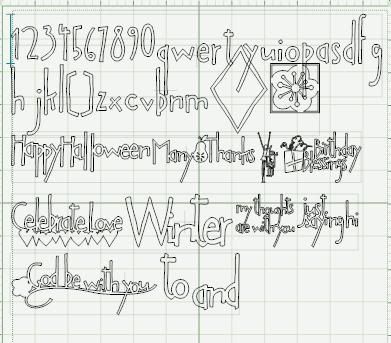 1234567890qwertyuiopasdfg
hjkl[]zxcvbnm
HappyHalloween Many Thanks Birthday blessings
CelebrateLove Winter my thoughts are with you just saying hi
God be with you to and